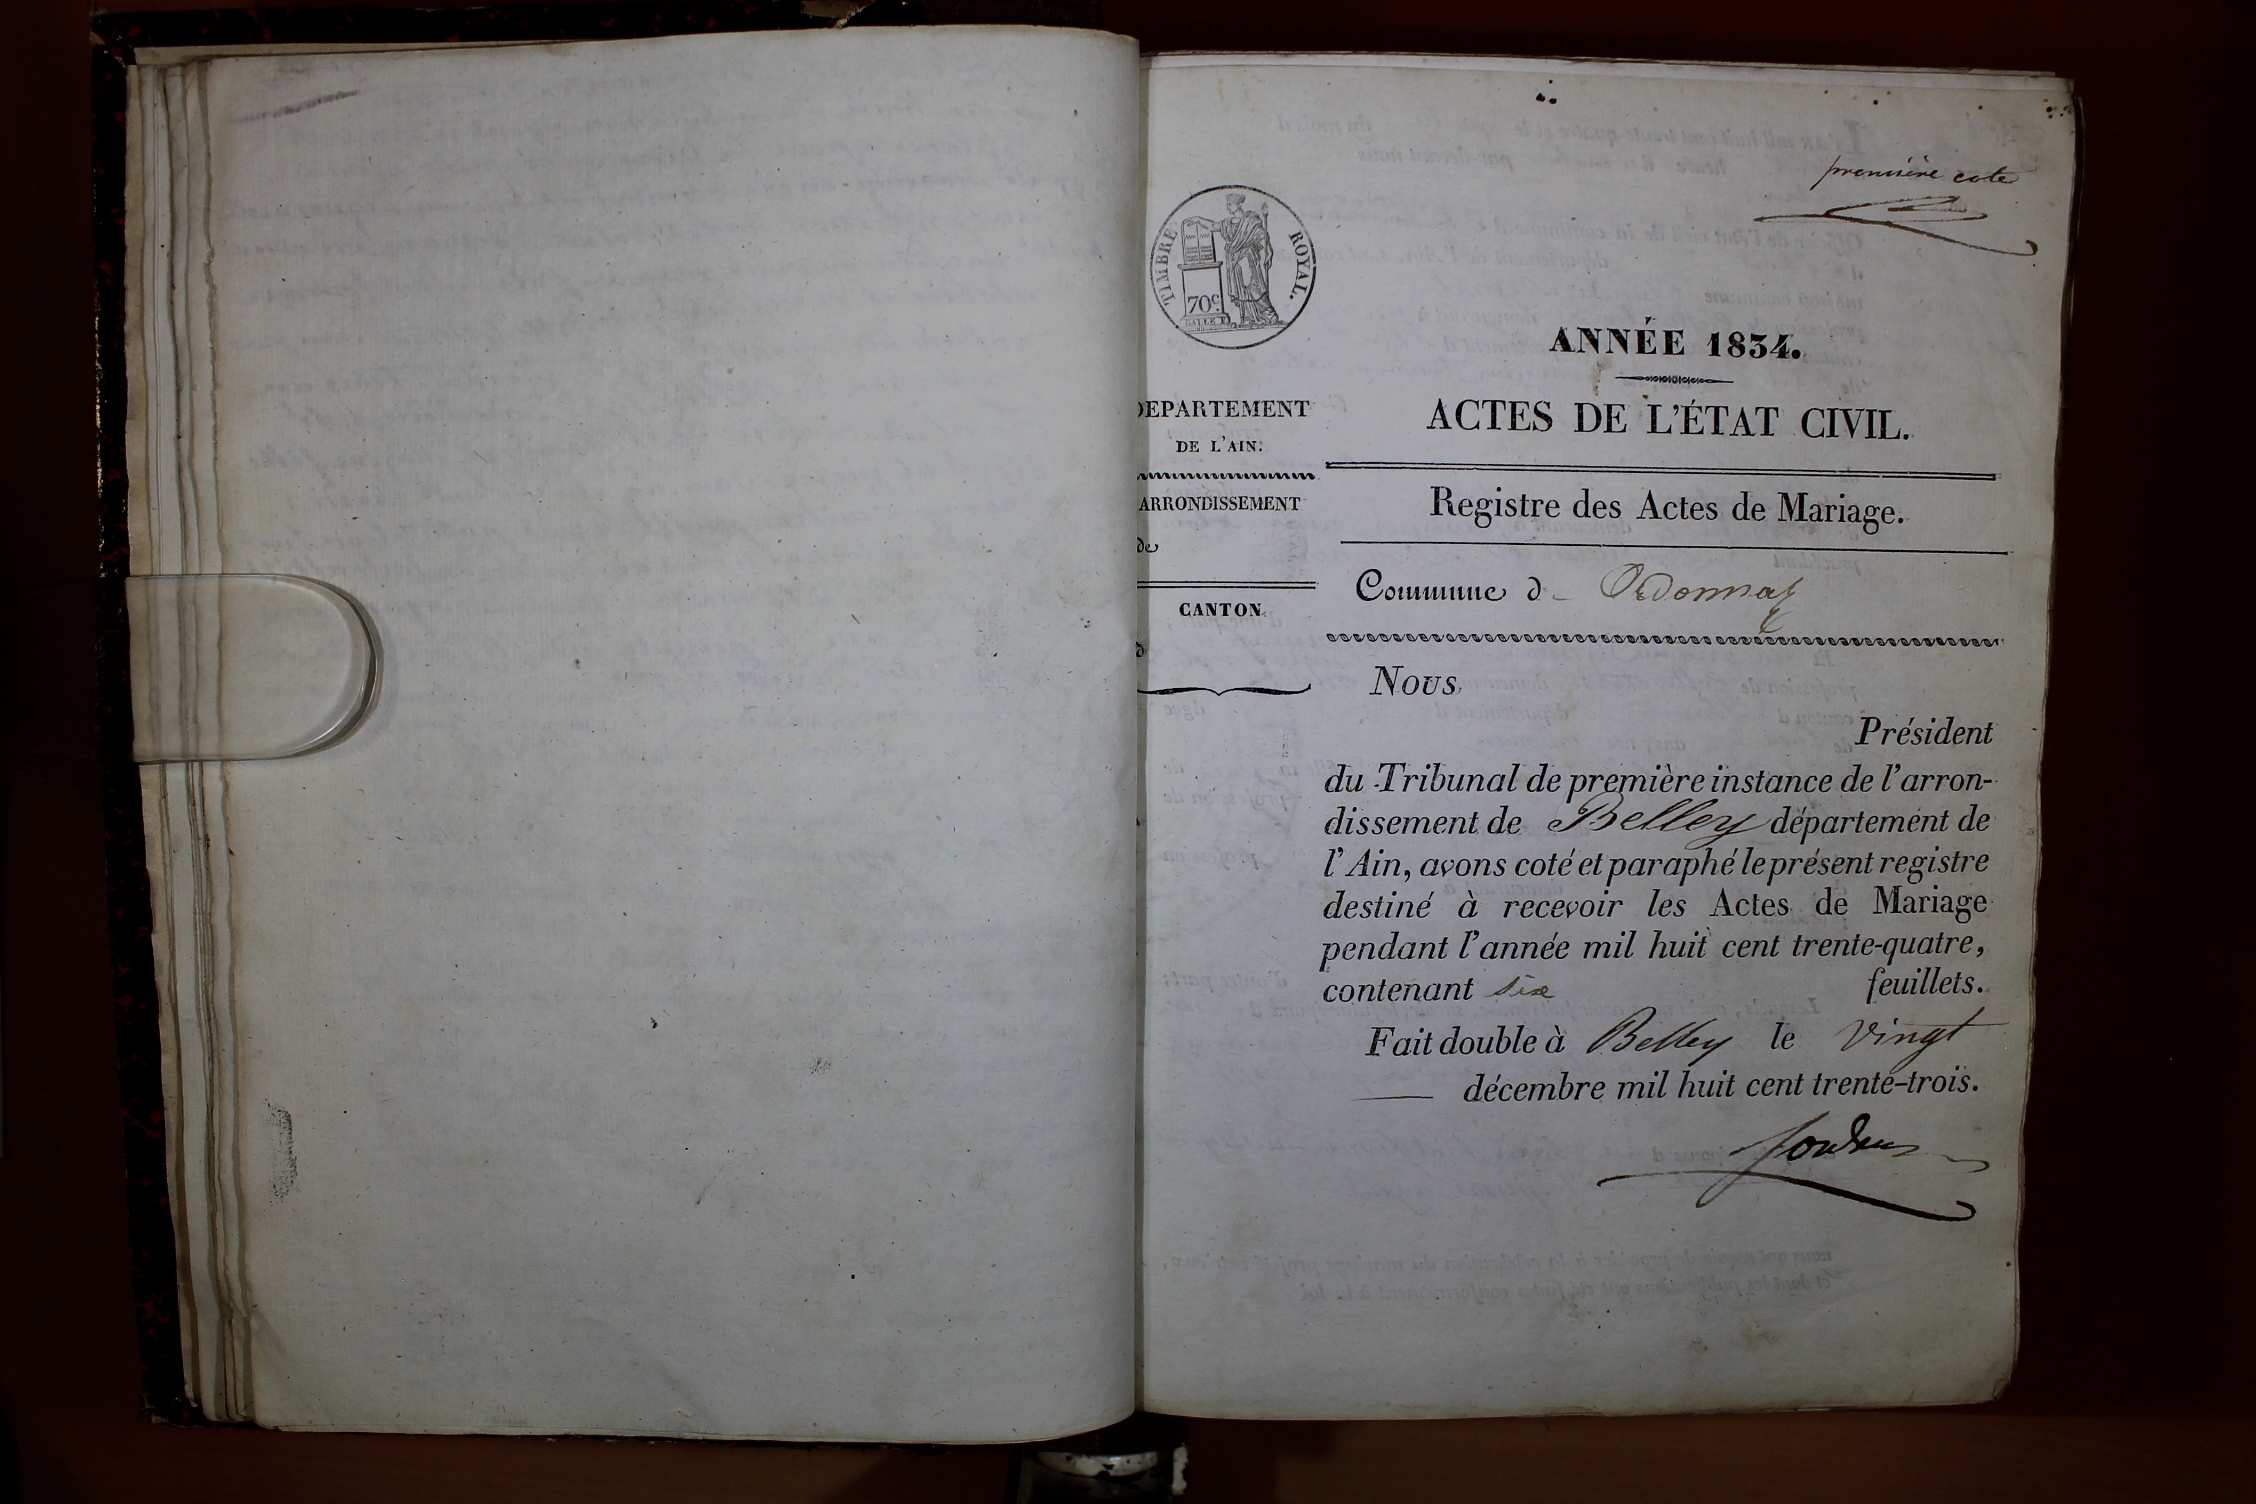 première cote
TIMBRE ROYAL.
70c.
ANNÉE 1834.
ACTES DE L'ÉTAT CIVIL.
DEPARTEMENT
DE L'AIN.
ARRONDISSEMENT
de
CANTON
d
Registre des Actes de Mariage.
Commune d Ordonnaz
Nous,
Président
du Tribunal de première instance de l'arron-
dissement de Belley département de
l'Ain, avons coté et paraphé le présent registre
destiné à recevoir les Actes de Mariage
pendant l'année mil huit cent trente-quatre,
contenant six feuillets.
Fait double à Belley le vingt
décembre mil huit cent trente-trois.